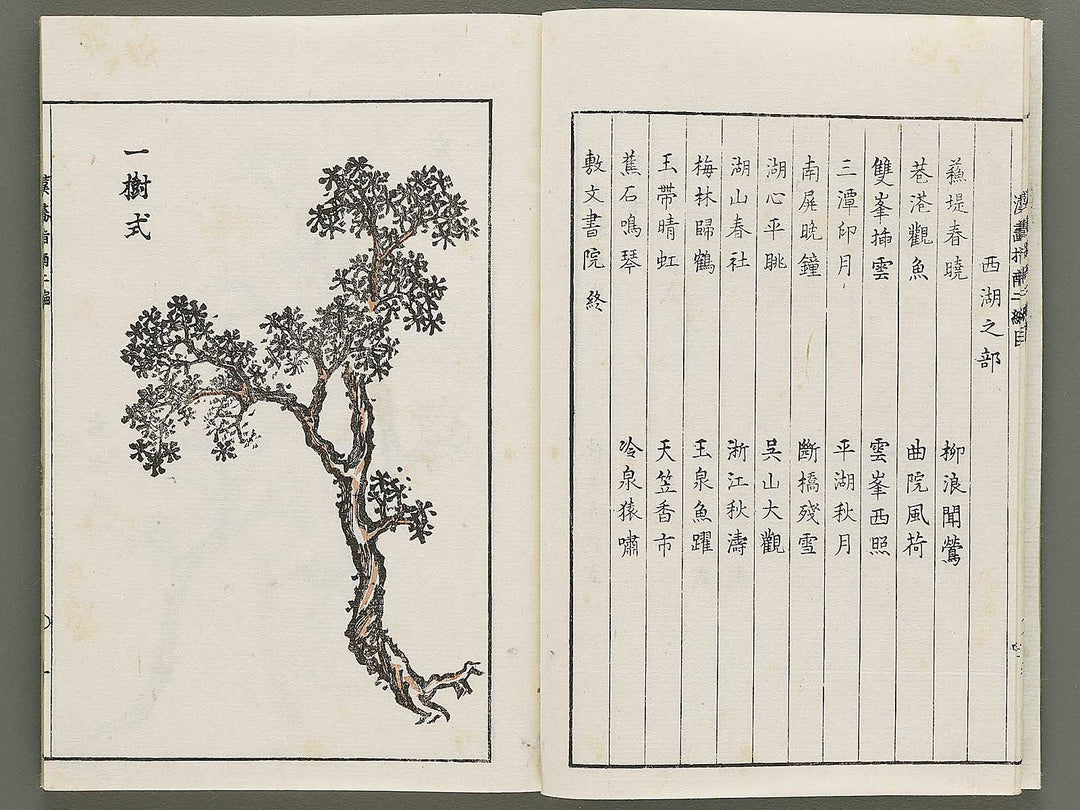 西湖之部
蘓堤春曉
柳浪聞鶯
巷港觀魚
曲院風荷
雙峯揷雲
雲峯西照
三潭印月
平湖秋月
南屏晩鐘
斷橋殘雪
湖心平眺
吴山大觀
湖山春社
浙江秋濤
梅林歸鶴
玉泉魚躍
玉帶晴虹
天笠香市
蕉石鳴琴
冷泉猿嘯
敷文書院 終
一樹式